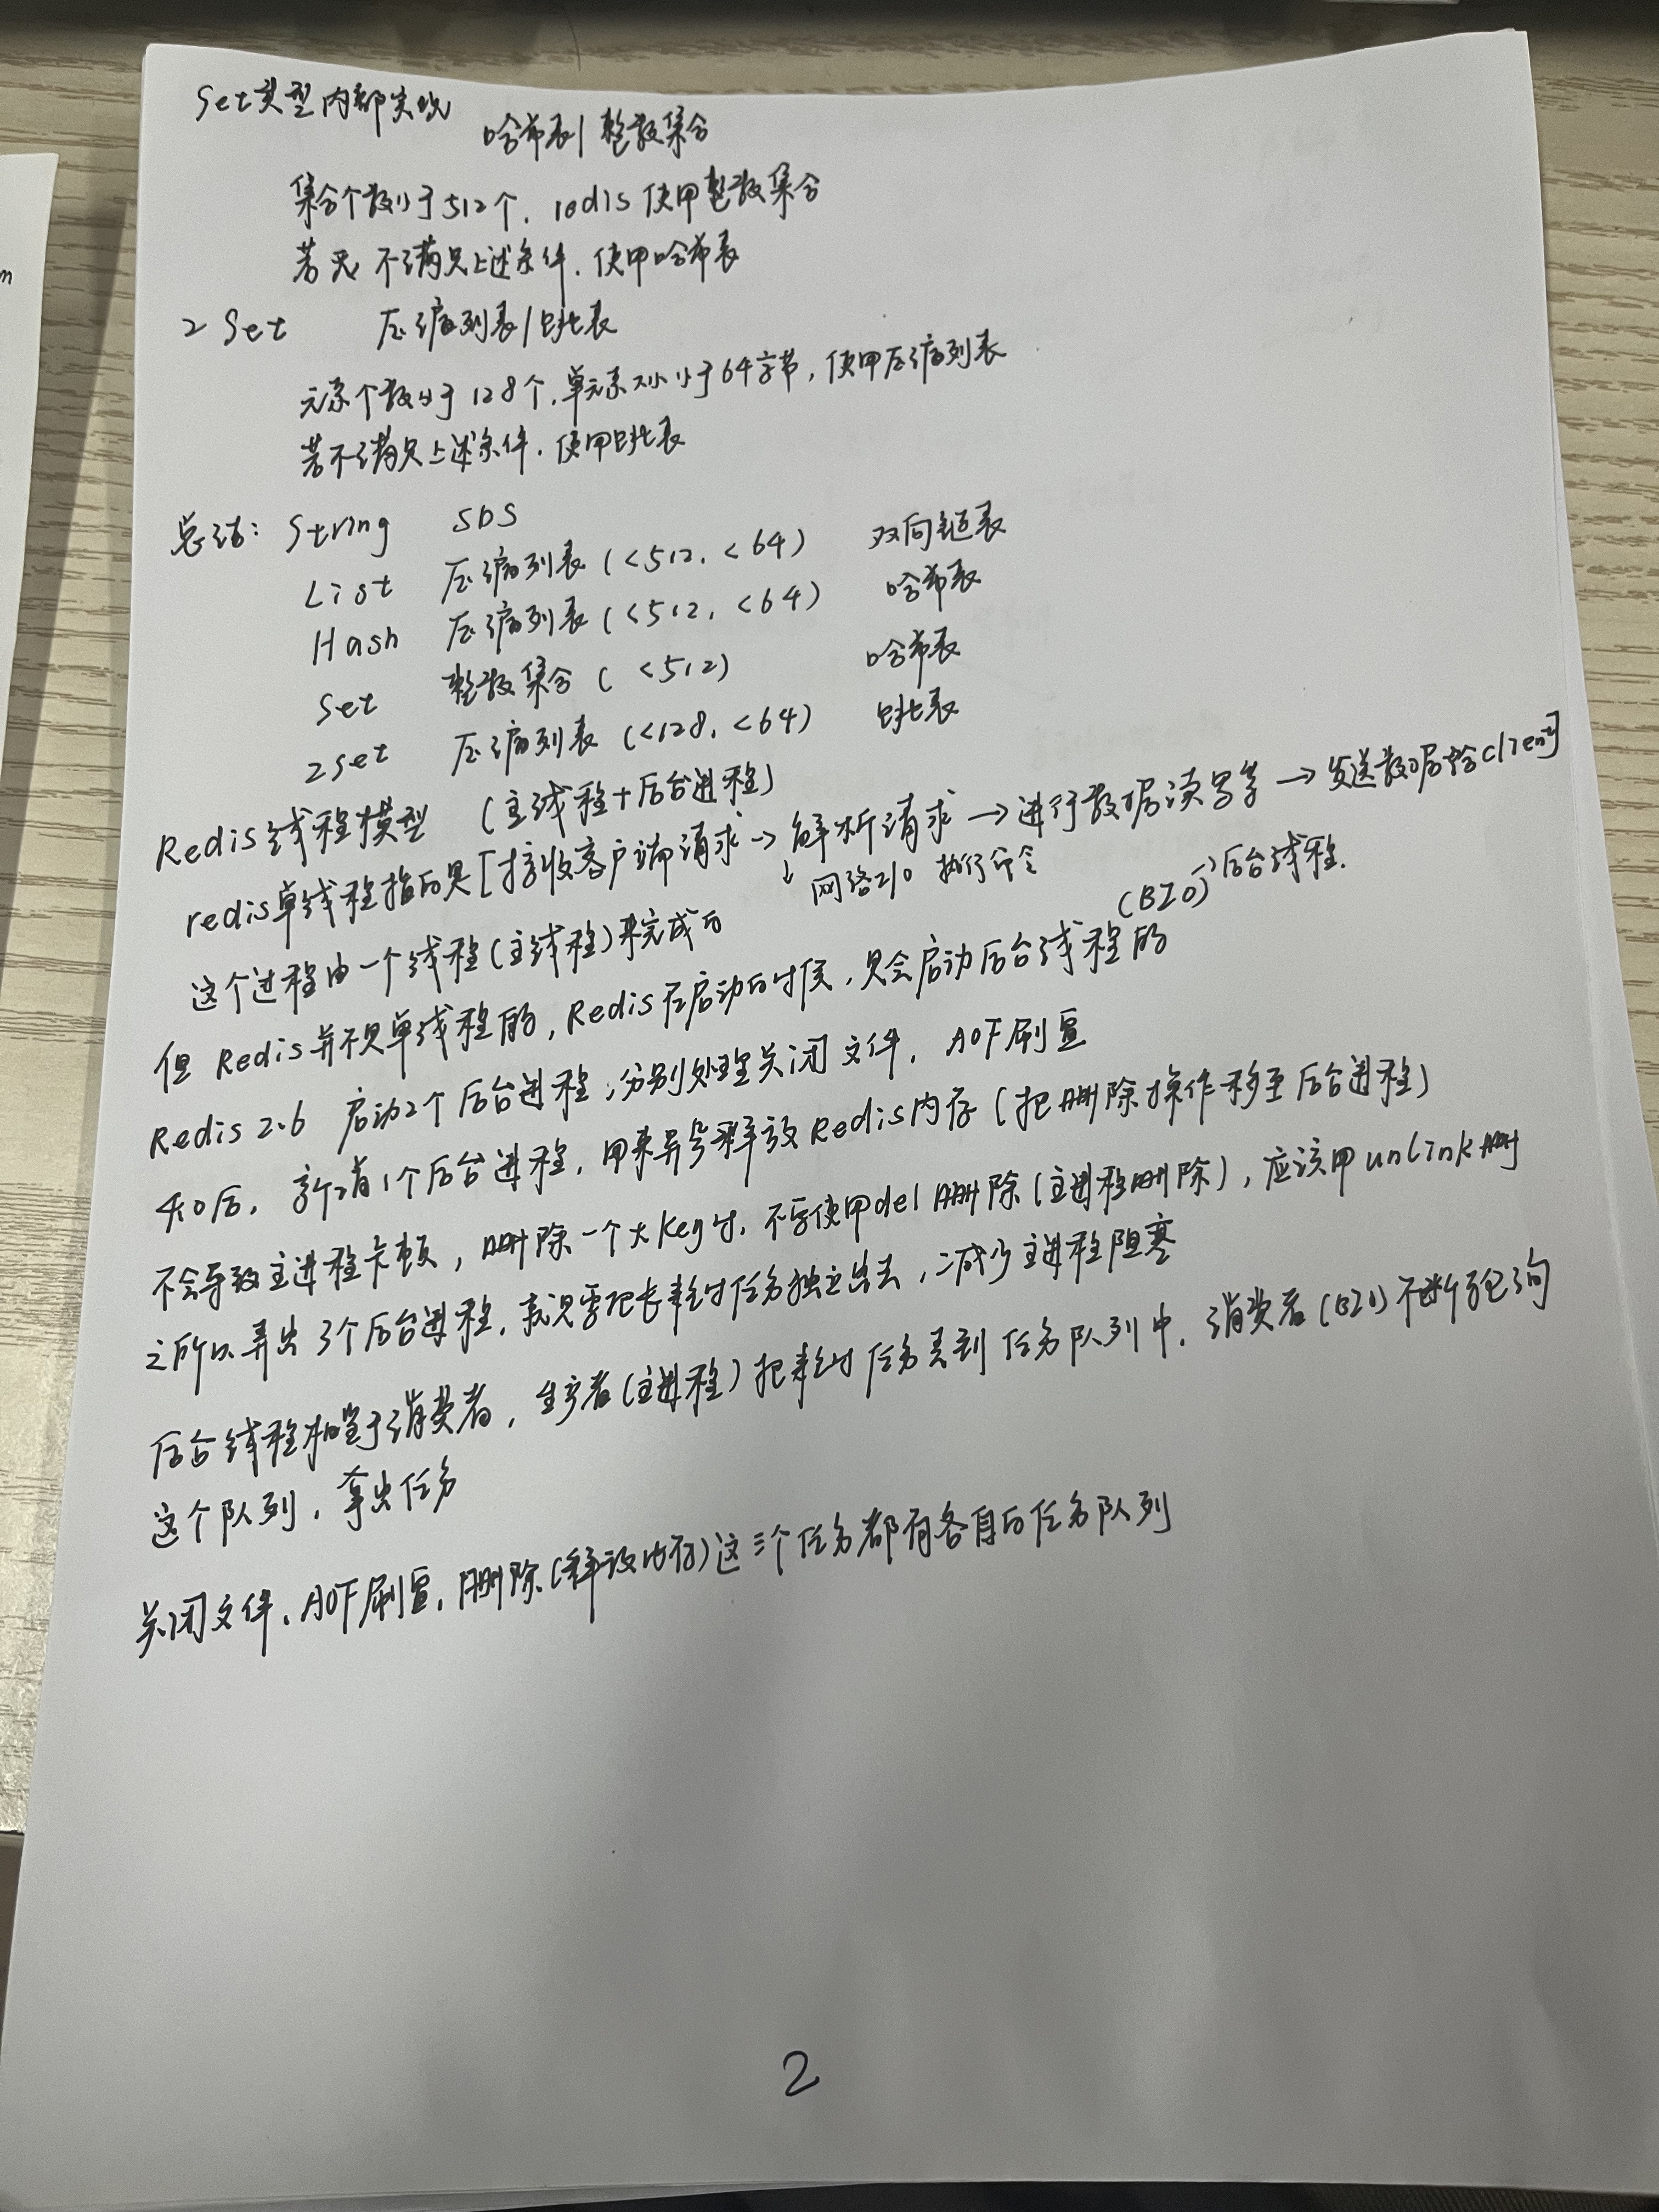 Set类型内部实现
哈希表/整数集合
集合个数小于512个, redis使用整数集合
若是不满足上述条件, 使用哈希表
ZSet 压缩列表/跳表
元素个数小于128个, 单元素大小小于64字节, 使用压缩列表
若不满足上述条件, 使用跳表
总结: String SDS
List 压缩列表 (<512, <64) 双向链表
Hash 压缩列表 (<512, <64) 哈希表
Set 整数集合 (<512) 哈希表
zset 压缩列表 (<128, <64) 跳表
Redis线程模型 (主线程+后台进程)
redis单线程指的是[接收客户端请求→解析请求→进行数据读写等→发送数据给client]
↓网络I/O 执行命令
这个过程由一个线程(主线程)来完成的
(BIO)→后台线程.
但 Redis并不是单线程的, Redis在启动的时候, 是会启动后台线程的
Redis 2.6 启动2个后台进程, 分别处理关闭文件, AOF刷盘
4.0后, 新增1个后台进程, 用来异步释放Redis内存 (把删除操作移至后台进程)
不会导致主进程卡顿, 删除一个大key时, 不要使用del删除(主进程删除), 应该用unlink删
之所以弄出3个后台进程, 就是要把长耗时任务独立出去, 减少主进程阻塞
后台线程相当于消费者, 生产者(主进程)把耗时任务丢到任务队列中, 消费者(BIO)不断轮询
这个队列, 拿出任务
关闭文件, AOF刷盘, 删除(释放内存)这三个任务都有各自的任务队列
2
m